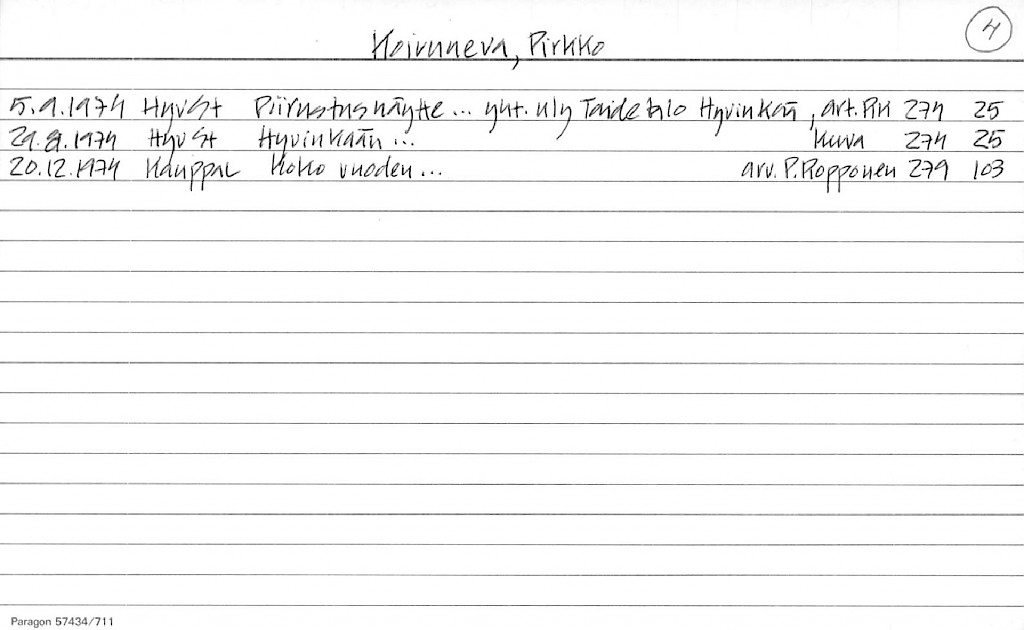 4
Koivuneva, Pirkko
5.9.1974 HyvSt Piirustusnäytte... yht. nly Taidetalo Hyvinkää, art. PiK 274 25
29.9.1974 HyvSt Hyvinkään... kuva 274 25
20.12.1974 KauppaL Koko vuoden... arv. P. Ropponen 279 103
Paragon 57434/711